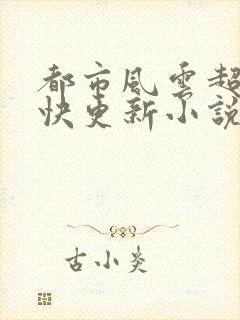 都市風雲超
快更新小說
古小炎